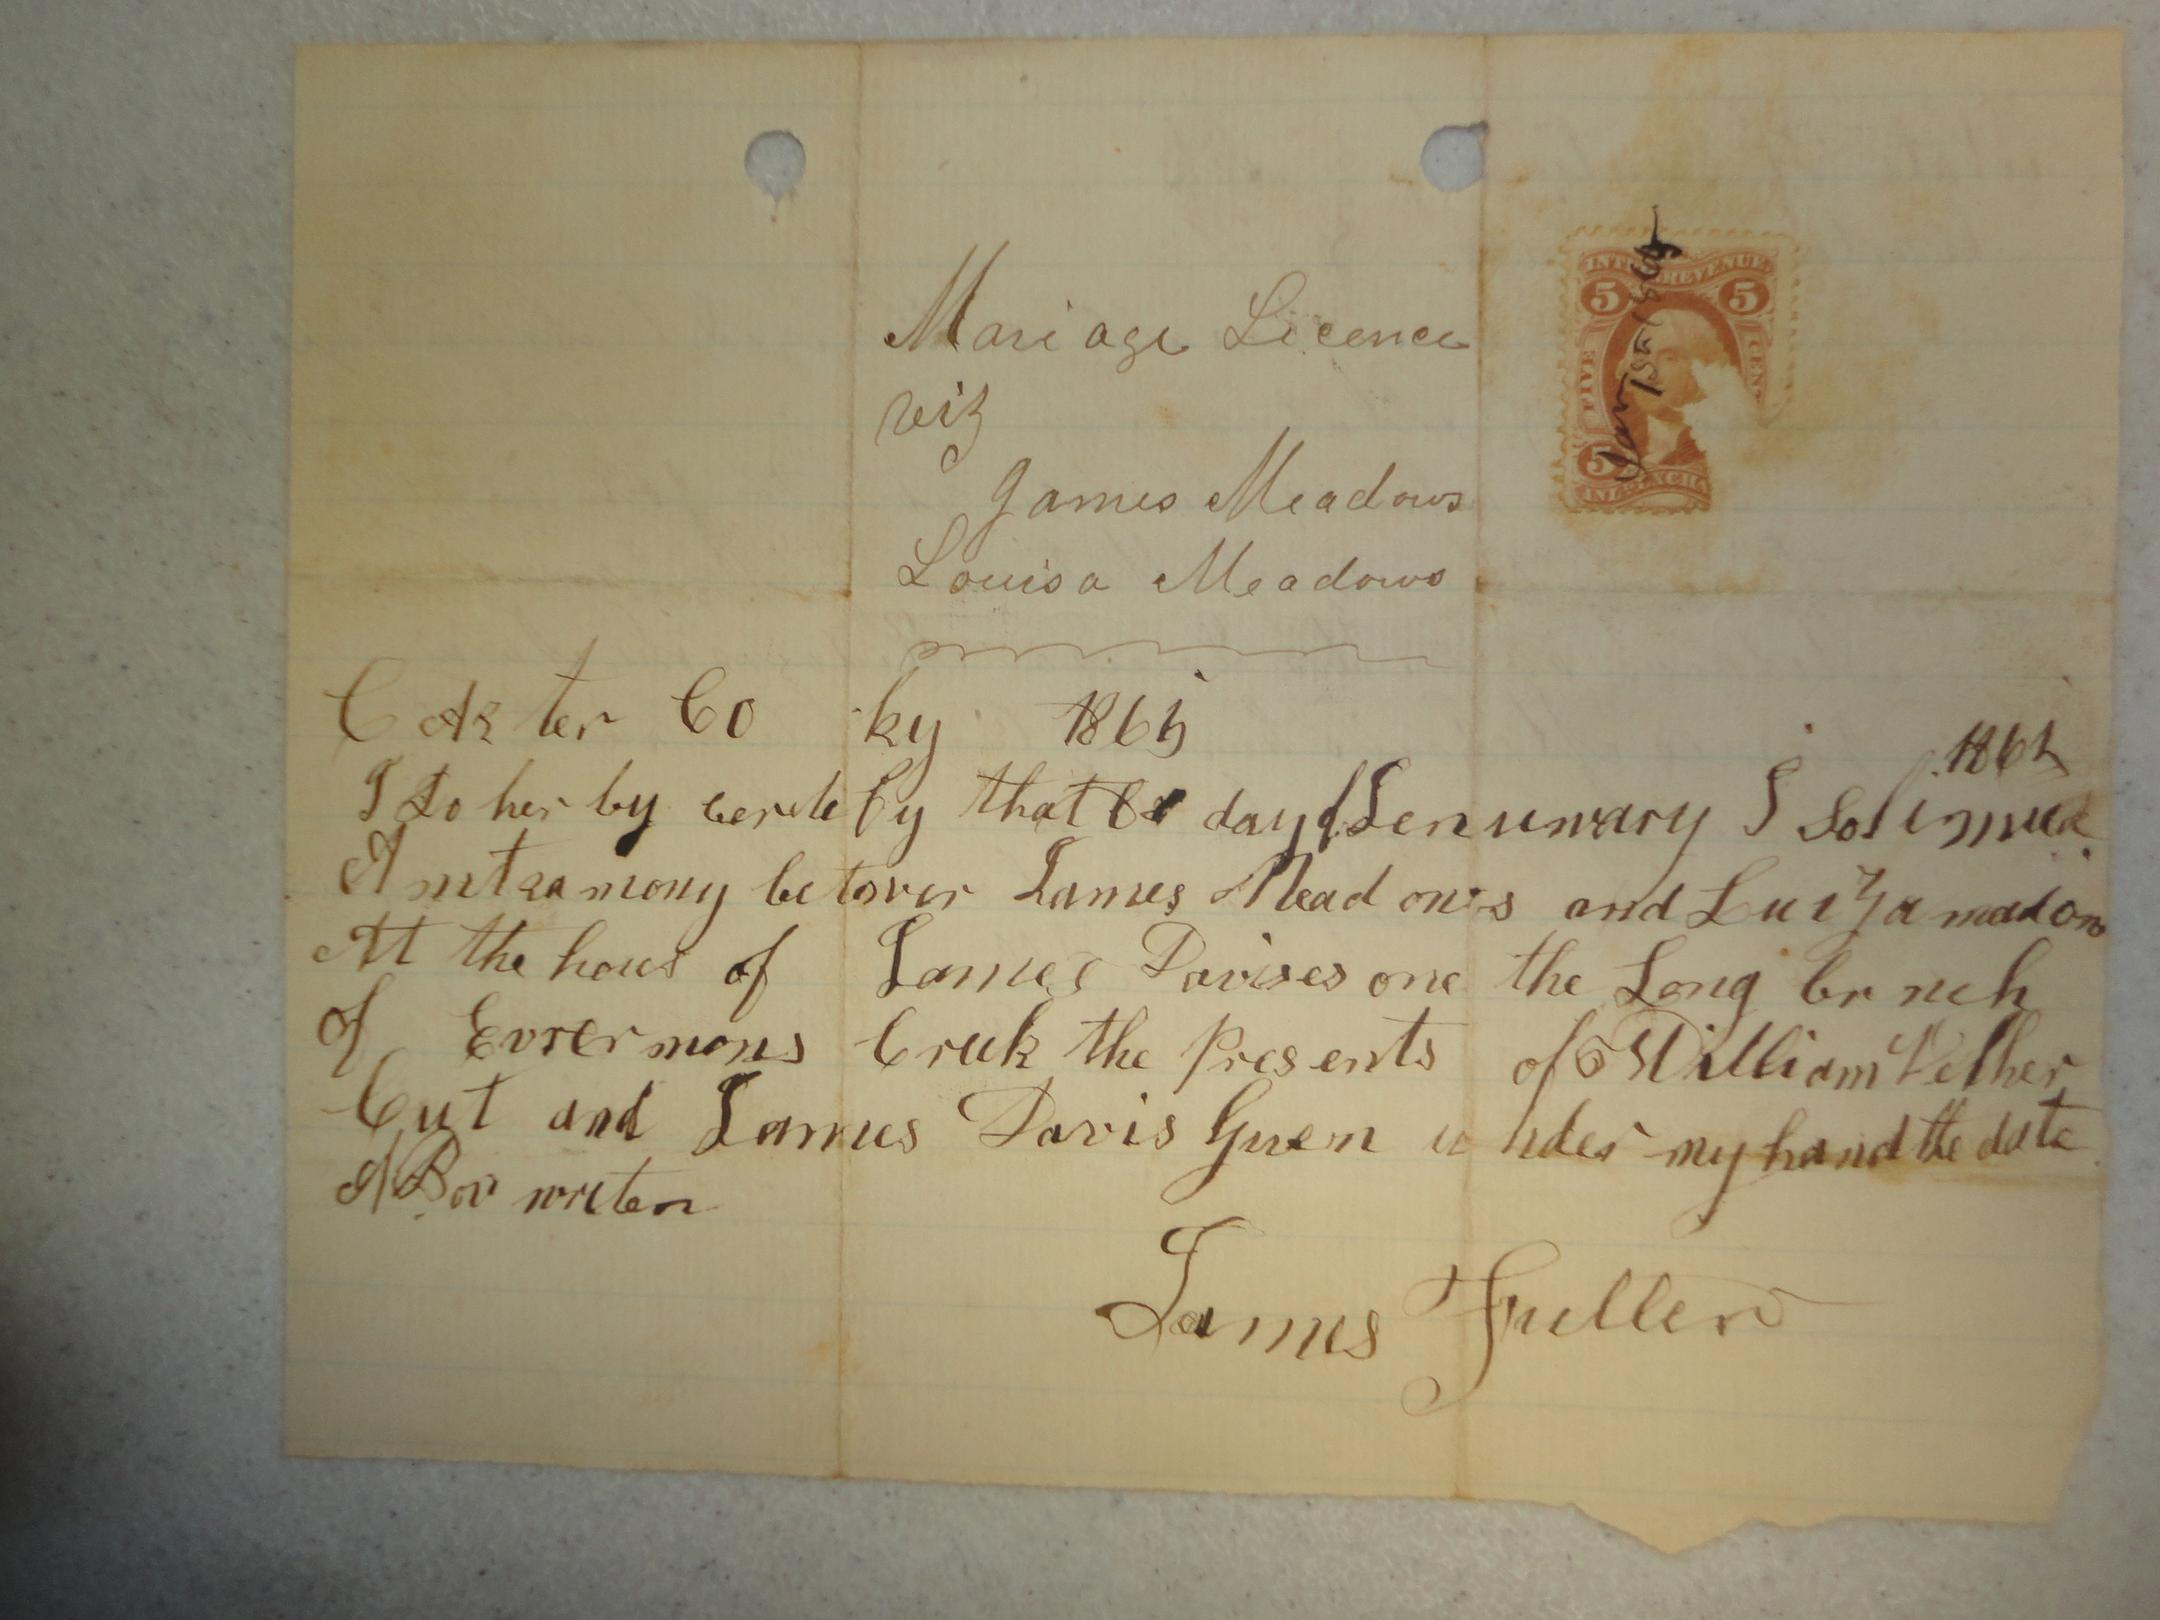 Mariage Licence
viz
James Meadows
Louisa Meadows
INTER. REVENUE
5 5
FIVE CENT
5
Jany 1865
Carter Co ky 1865
1865
I do her by certefy that day of Jenuwary I Solimnied
A mtramony betwen James Meadows and Luiza madows
At the hous of James Davises one the Long brnch
of Evrermons Creek the Presents of William
Cut and James Davis Given under my hand the date
A Bov writen
James Fuller